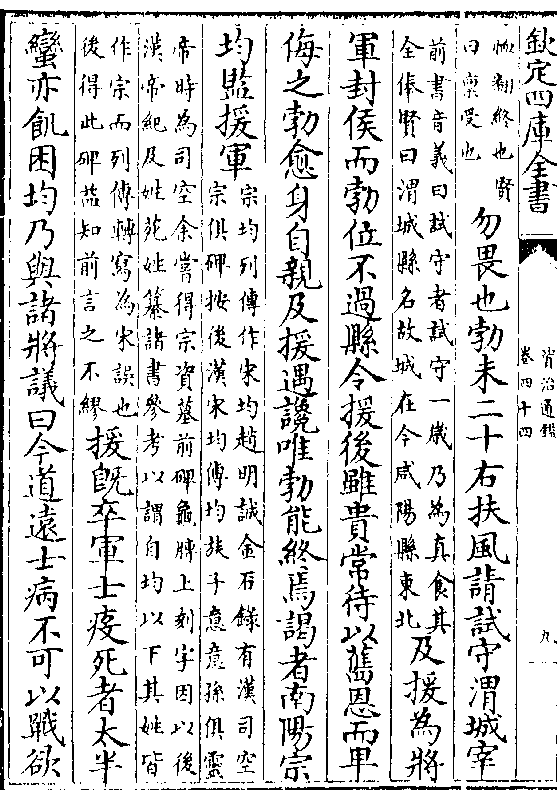 欽定四庫全書
資治通鑑
卷四十四
九
恤翻終也賢
曰稟受也
勿畏也勃未二十右扶風請試守渭城宰
前書音義曰試守者試守一歲乃為真食其
全俸賢曰渭城縣名故城在今咸陽縣東北
及援為將
軍封侯而勃位不過縣令援後雖貴常待以舊恩而卑
侮之勃愈身自親及援遇讒唯勃能終焉謁者南陽宗
均監援軍
宗均列傳作宋均趙明誠金石錄有漢司空
宗俱碑按後漢宋均傳均族子意意孫俱靈
帝時為司空余嘗得宗資墓前碑龜膊上刻字因以後
漢帝紀及姓苑姓纂諸書參考以謂自均以下其姓皆
作宗而列傳轉寫為宋誤也
後得此碑益知前言之不繆
援既卒軍士疫死者太半
蠻亦飢困均乃與諸將議曰今道遠士病不可以戰欲